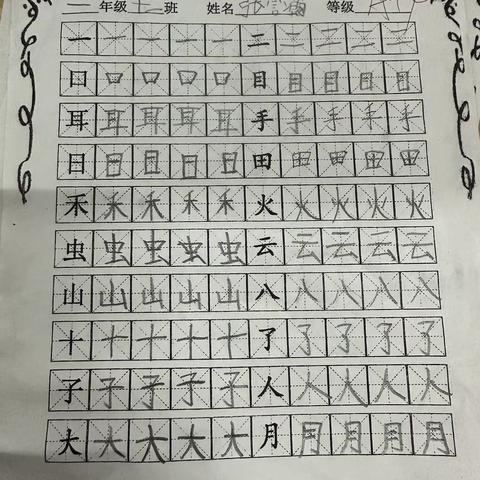 年级 班 姓名 张 等级
一 一 一 一 一 二 二 二 二 二
口 口 口 口 口 目 目 目 目 目
耳 耳 耳 耳 耳 手 手 手 手 手
日 日 日 日 日 田 田 田 田 田
禾 禾 禾 禾 禾 火 火 火 火 火
虫 虫 虫 虫 虫 云 云 云 云 云
山 山 山 山 山 八 八 八 八 八
十 十 十 十 十 了 了 了 了 了
子 子 子 子 子 人 人 人 人 人
大 大 大 大 大 月 月 月 月 月